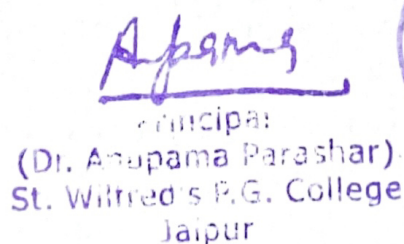 Principal
(Dr. Anupama Parashar)
St. Wilfred's P.G. College
Jaipur